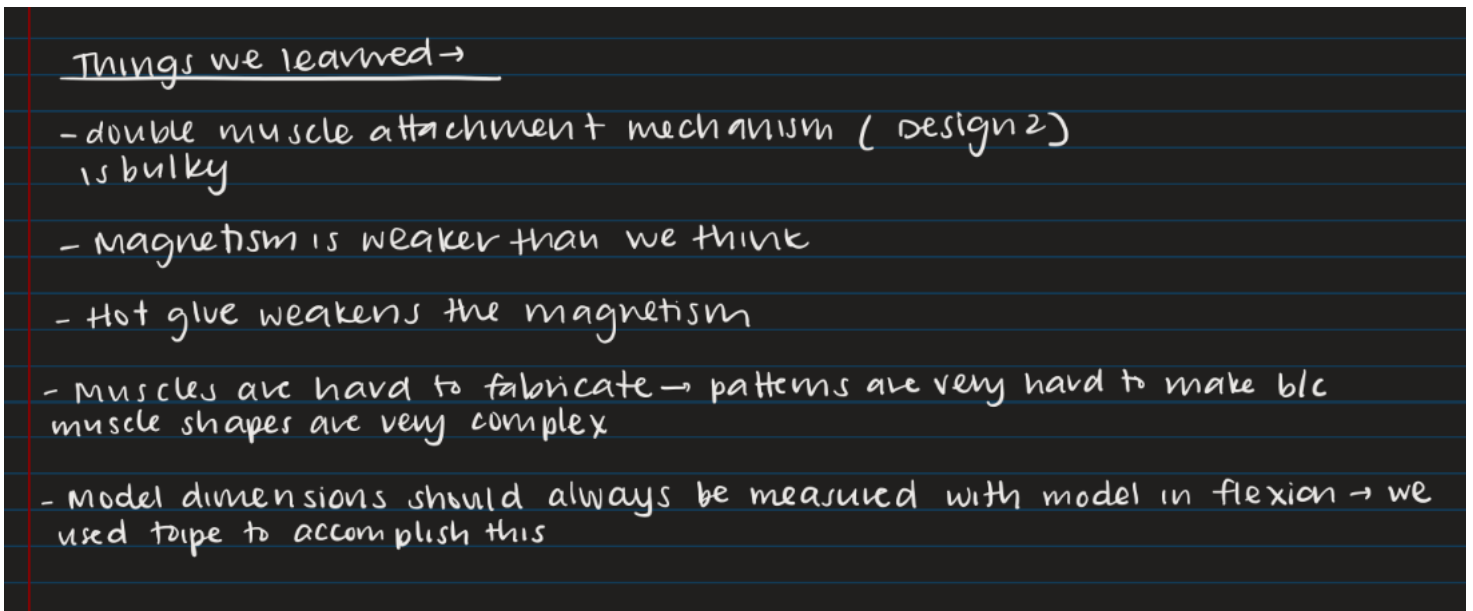 Things we learned →
- double muscle attachment mechanism (Design 2)
is bulky
- Magnetism is weaker than we think
- Hot glue weakens the magnetism
- Muscles are hard to fabricate → patterns are very hard to make b/c
muscle shapes are very complex
- Model dimensions should always be measured with model in flexion → we
used tape to accomplish this